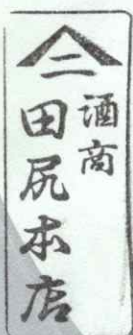 二
酒商
田尻本店